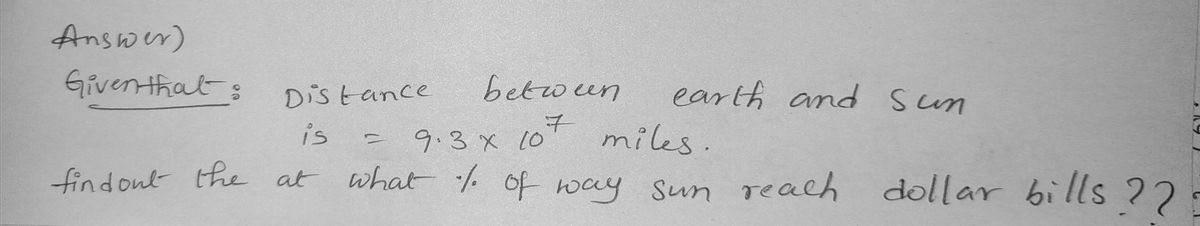 Answer)
Given that: Distance between earth and sun
is = 9.3 x 10⁷ miles.
find out the at what % of way sun reach dollar bills ??